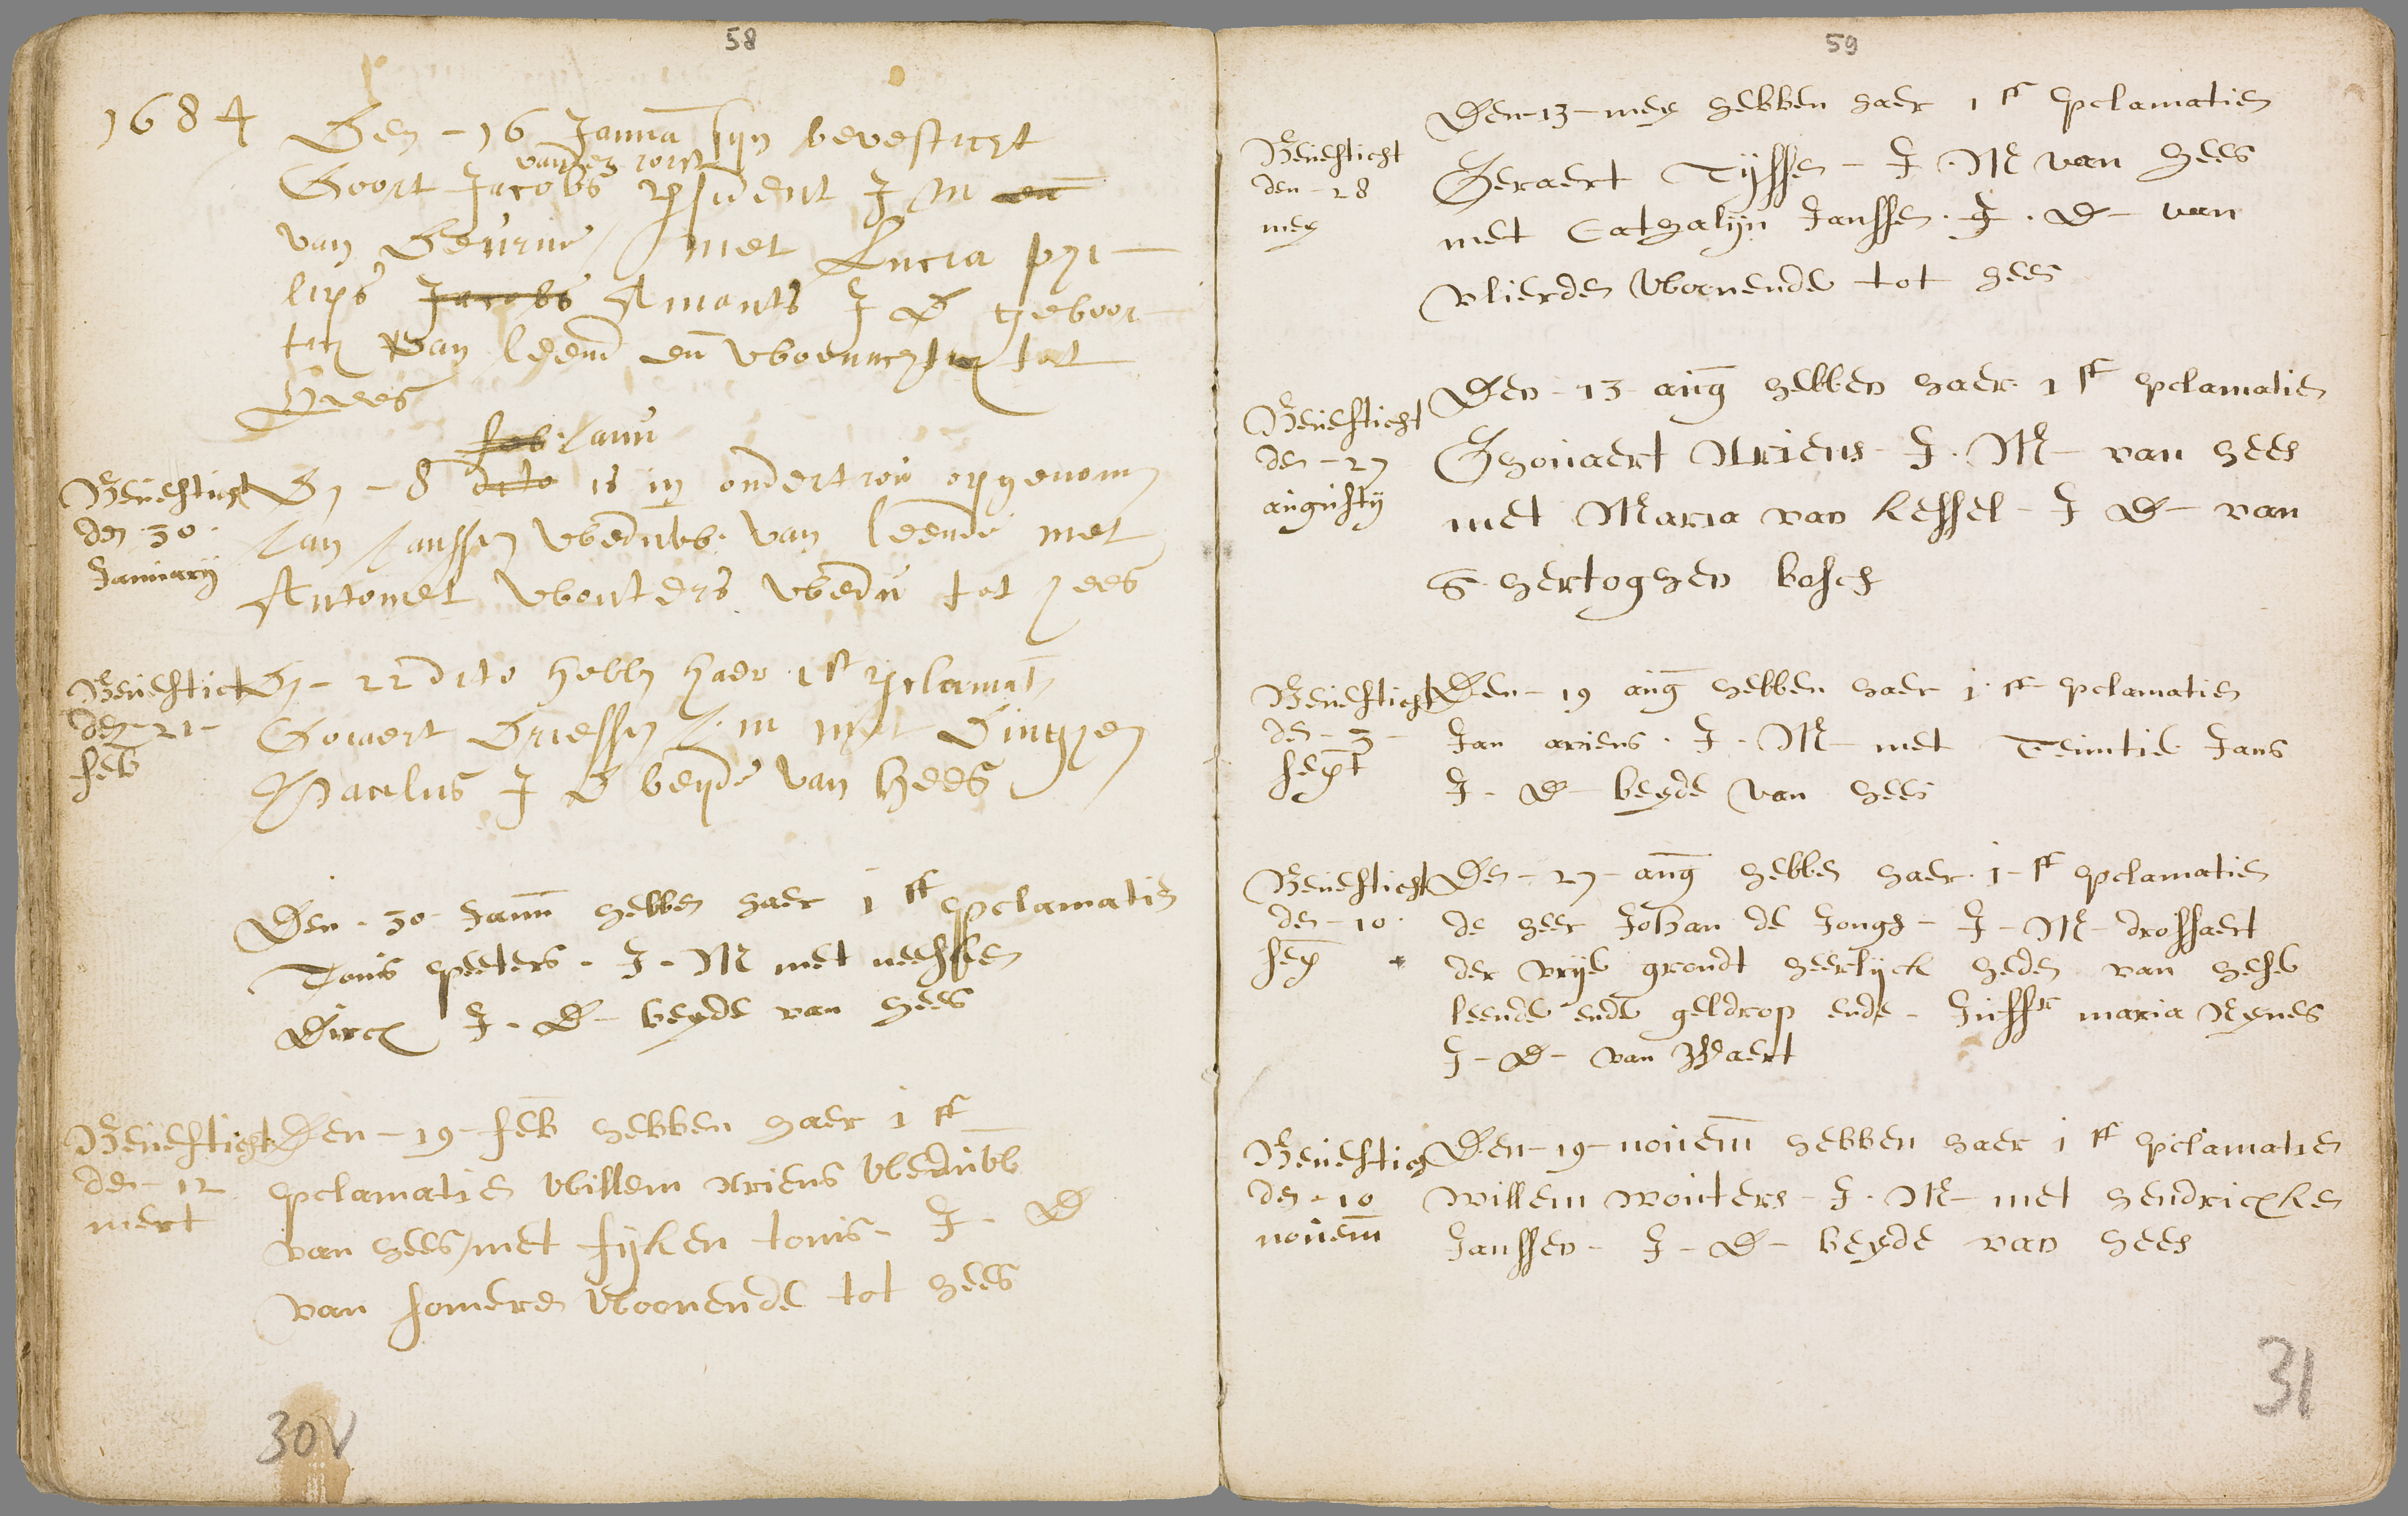 58
1684
Den - 16 Janua sijn bevesticht
vanden vorst
Goort Jacobs president J M en
van Deurne / met Lucia phi-
lips Jacobs Amants J D geboor-
tich van leend en woonachtich tot
Hees
feb. Janu
Bevesticht
den 30
January
Dn - 8 dito is in ondertrou opgenomen
Jan Janssen weduwb. van leende met
Antonet Wouters wedu tot hees
Bevestict
den - 21 -
feb
Dn - 22 dito hebbn haer 1st pclamatn
Govert Driessen J m met Dingen
Paculus J D beyde van Hees
Den - 30 Janu hebben haer 1 st pclamatien
Tonis peeters - J - M met neesken
Dircx J - D - beyde van hees
Bevesticht
den - 12
mert
Den - 19 - feb hebben haer 1 st
pclamatien Willem Ariens Weduwb
van hees / met fijken tonis - J - D
van someren Woonende tot hees
30V
59
Bevesticht
den - 28
mey
Den - 13 - mey hebben haer 1 st pclamatien
Geraert Tijssen - J . M van hees
met Cathalijn Janssen . J . D - van
vlierden Woonende tot hees
Bevesticht
den - 27
augusty
Den - 13 aug hebben haer 1 st pclamatien
Ghovaert Ariens - J . M - van hees
met Maria van kessel - J D - van
S hertoghen bosch
Bevesticht
den - 3 -
sept
Den - 19 aug hebben haer 1 . st pclamatien
Jan ariens . J . M - met Teuntie Jans
J - D - beyde van hees
Bevesticht
den - 10
sep
Den - 27 - aug hebben haer . 1 - st pclamatien
de heer Johan de Jongh - J - M - drossaert
der vrije grondt heerlijck heden van hese
leende ende geldrop ende - Juffr maria Nynes
J - D - van Waert
Bevestich
den - 10
novem
Den - 19 - novem hebben haer 1 st pclamatien
willem wouters - J . M - met hendricxken
Janssen - J - D - beyde van hees
31